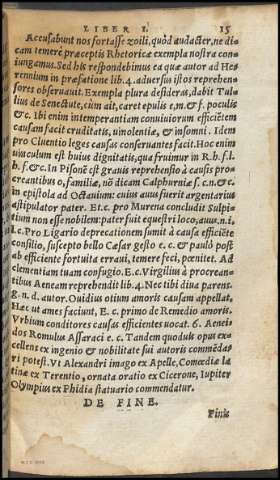 LIBER I. 15
Accusabunt nos fortasse zoili, quòd audacter, ne di
cam temerè præceptis Rhetoricæ exempla nostra con
iungamus. Sed his respondebimus ea quæ autor ad He
rennium in præfatione lib. 4. aduersus istos reprehen
sores obseruauit. Exempla plura desideras, dabit Tul
lius de Senectute, cùm ait, caret epulis e. m. & f. poculis
& c. Ibi enim intemperantiam conuiuiorum efficiētem
causam facit cruditatis, uinolentiæ, & insomni. Idem
pro Cluentio leges causas conseruantes facit. Hoc enim
uinculum est huius dignitatis, qua fruimur in R. h. f. l.
h. f. & c. In Pisonē est grauis reprehensio à causis pro-
creantibus o, familiæ, nō dicam Calphurniæ f. c. n. & c.
in epistola ad Octauium: cuius auus fuerit argentarius
astipulator pater. Et c. pro Murena concludit Sulpi
tium non esse nobilem: pater fuit equestri loco, auus. n. i.
l. c. Pro Ligario deprecationem sumit à causa efficiēte
consilio, suscepto bello Cæsar gesto e. c. & paulò post
ab efficiente fortuita erraui, temerè feci, pœnitet. Ad
clementiam tuam confugio. E. c. Virgilius à procrean-
tibus Aeneam reprehendit lib. 4. Nec tibi diua parens.
g. n. d. autor. Ouidius otium amoris causam appellat,
Hæc ut ames faciunt, E. c. primo de Remedio amoris.
Vrbium conditores causas efficientes uocat. 6. Aenei
dos Romulus Assaraci e. c. Tandem quoduis opus ex-
cellens ex ingenio & nobilitate sui autoris commēda-
ri potest. Vt Alexandri imago ex Apelle, Comœdia la
tinæ ex Terentio, ornata oratio ex Cicerone, Iupiter
Olympius ex Phidia statuario commendatur.
DE FINE.
Finis